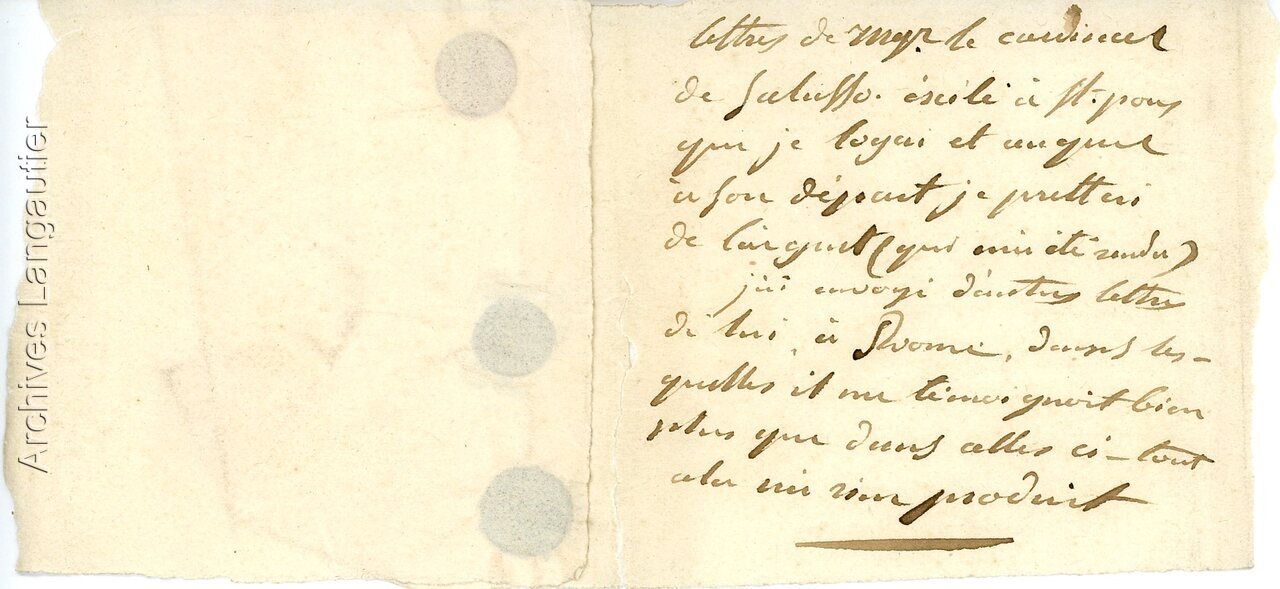 Archives Langautier
lettres de Mgr. le cardinal
de Salusso. éxilé à St. pons
que je logai et auquel
à son départ, je prettai
de l'argent (qui m'a été rendu)
j'ai envoyé d'autres lettres
de lui, à Rome, dans les-
quelles il me témoignoit bien
plus que dans celles ci - tout
cela n'a rien produit